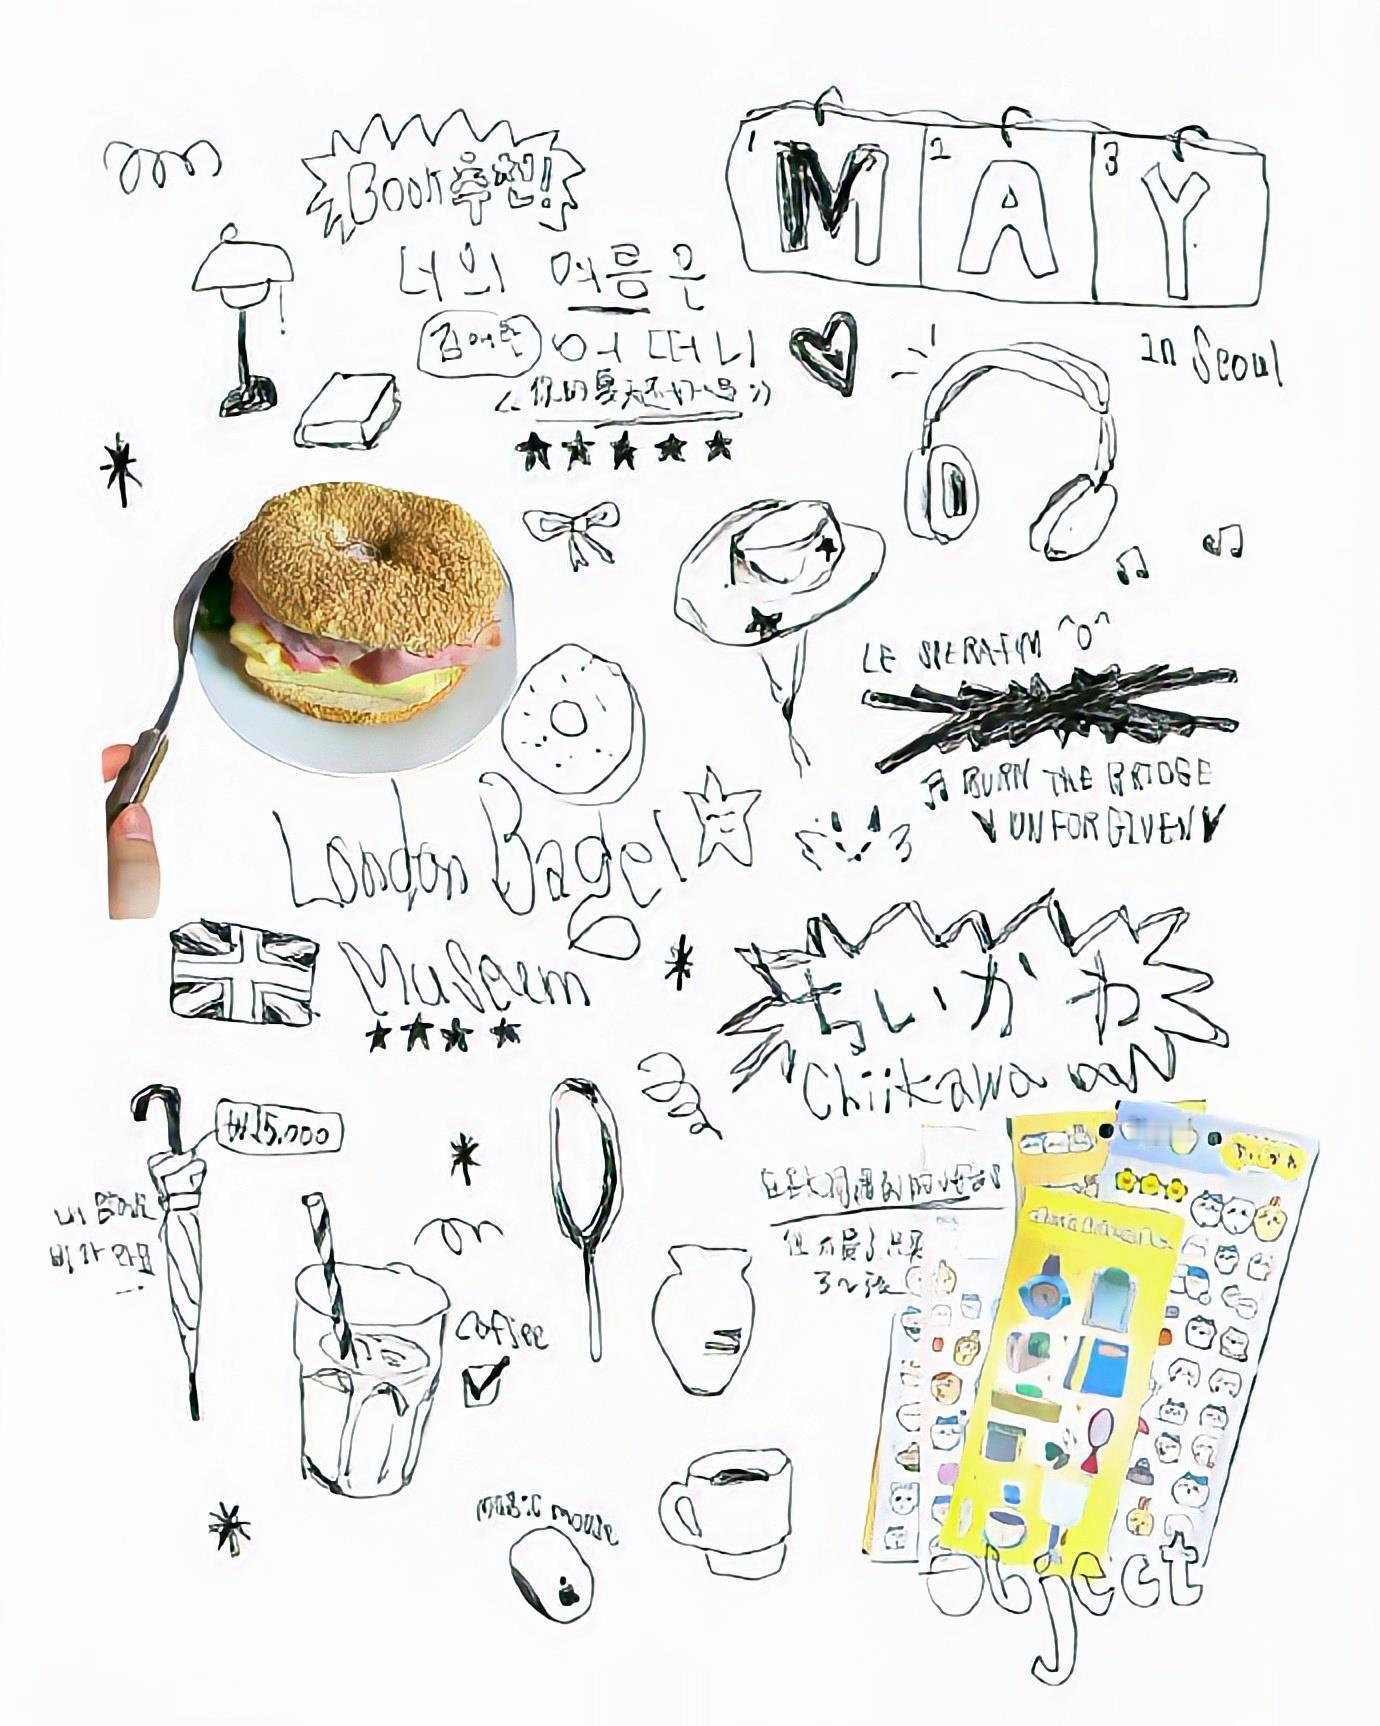 Book추천!
1 M 2 A 3 Y
in Seoul
너의 여름은
김애란 어떠니
<你的夏天还好吗?>
LE SSERAFIM ^o^
BURN THE BRIDGE
UNFORGIVEN
London Bagel
Museum
ちいかわ
Chiikawa
₩15,000
비가 와요
但
coffee
magic mouse
object